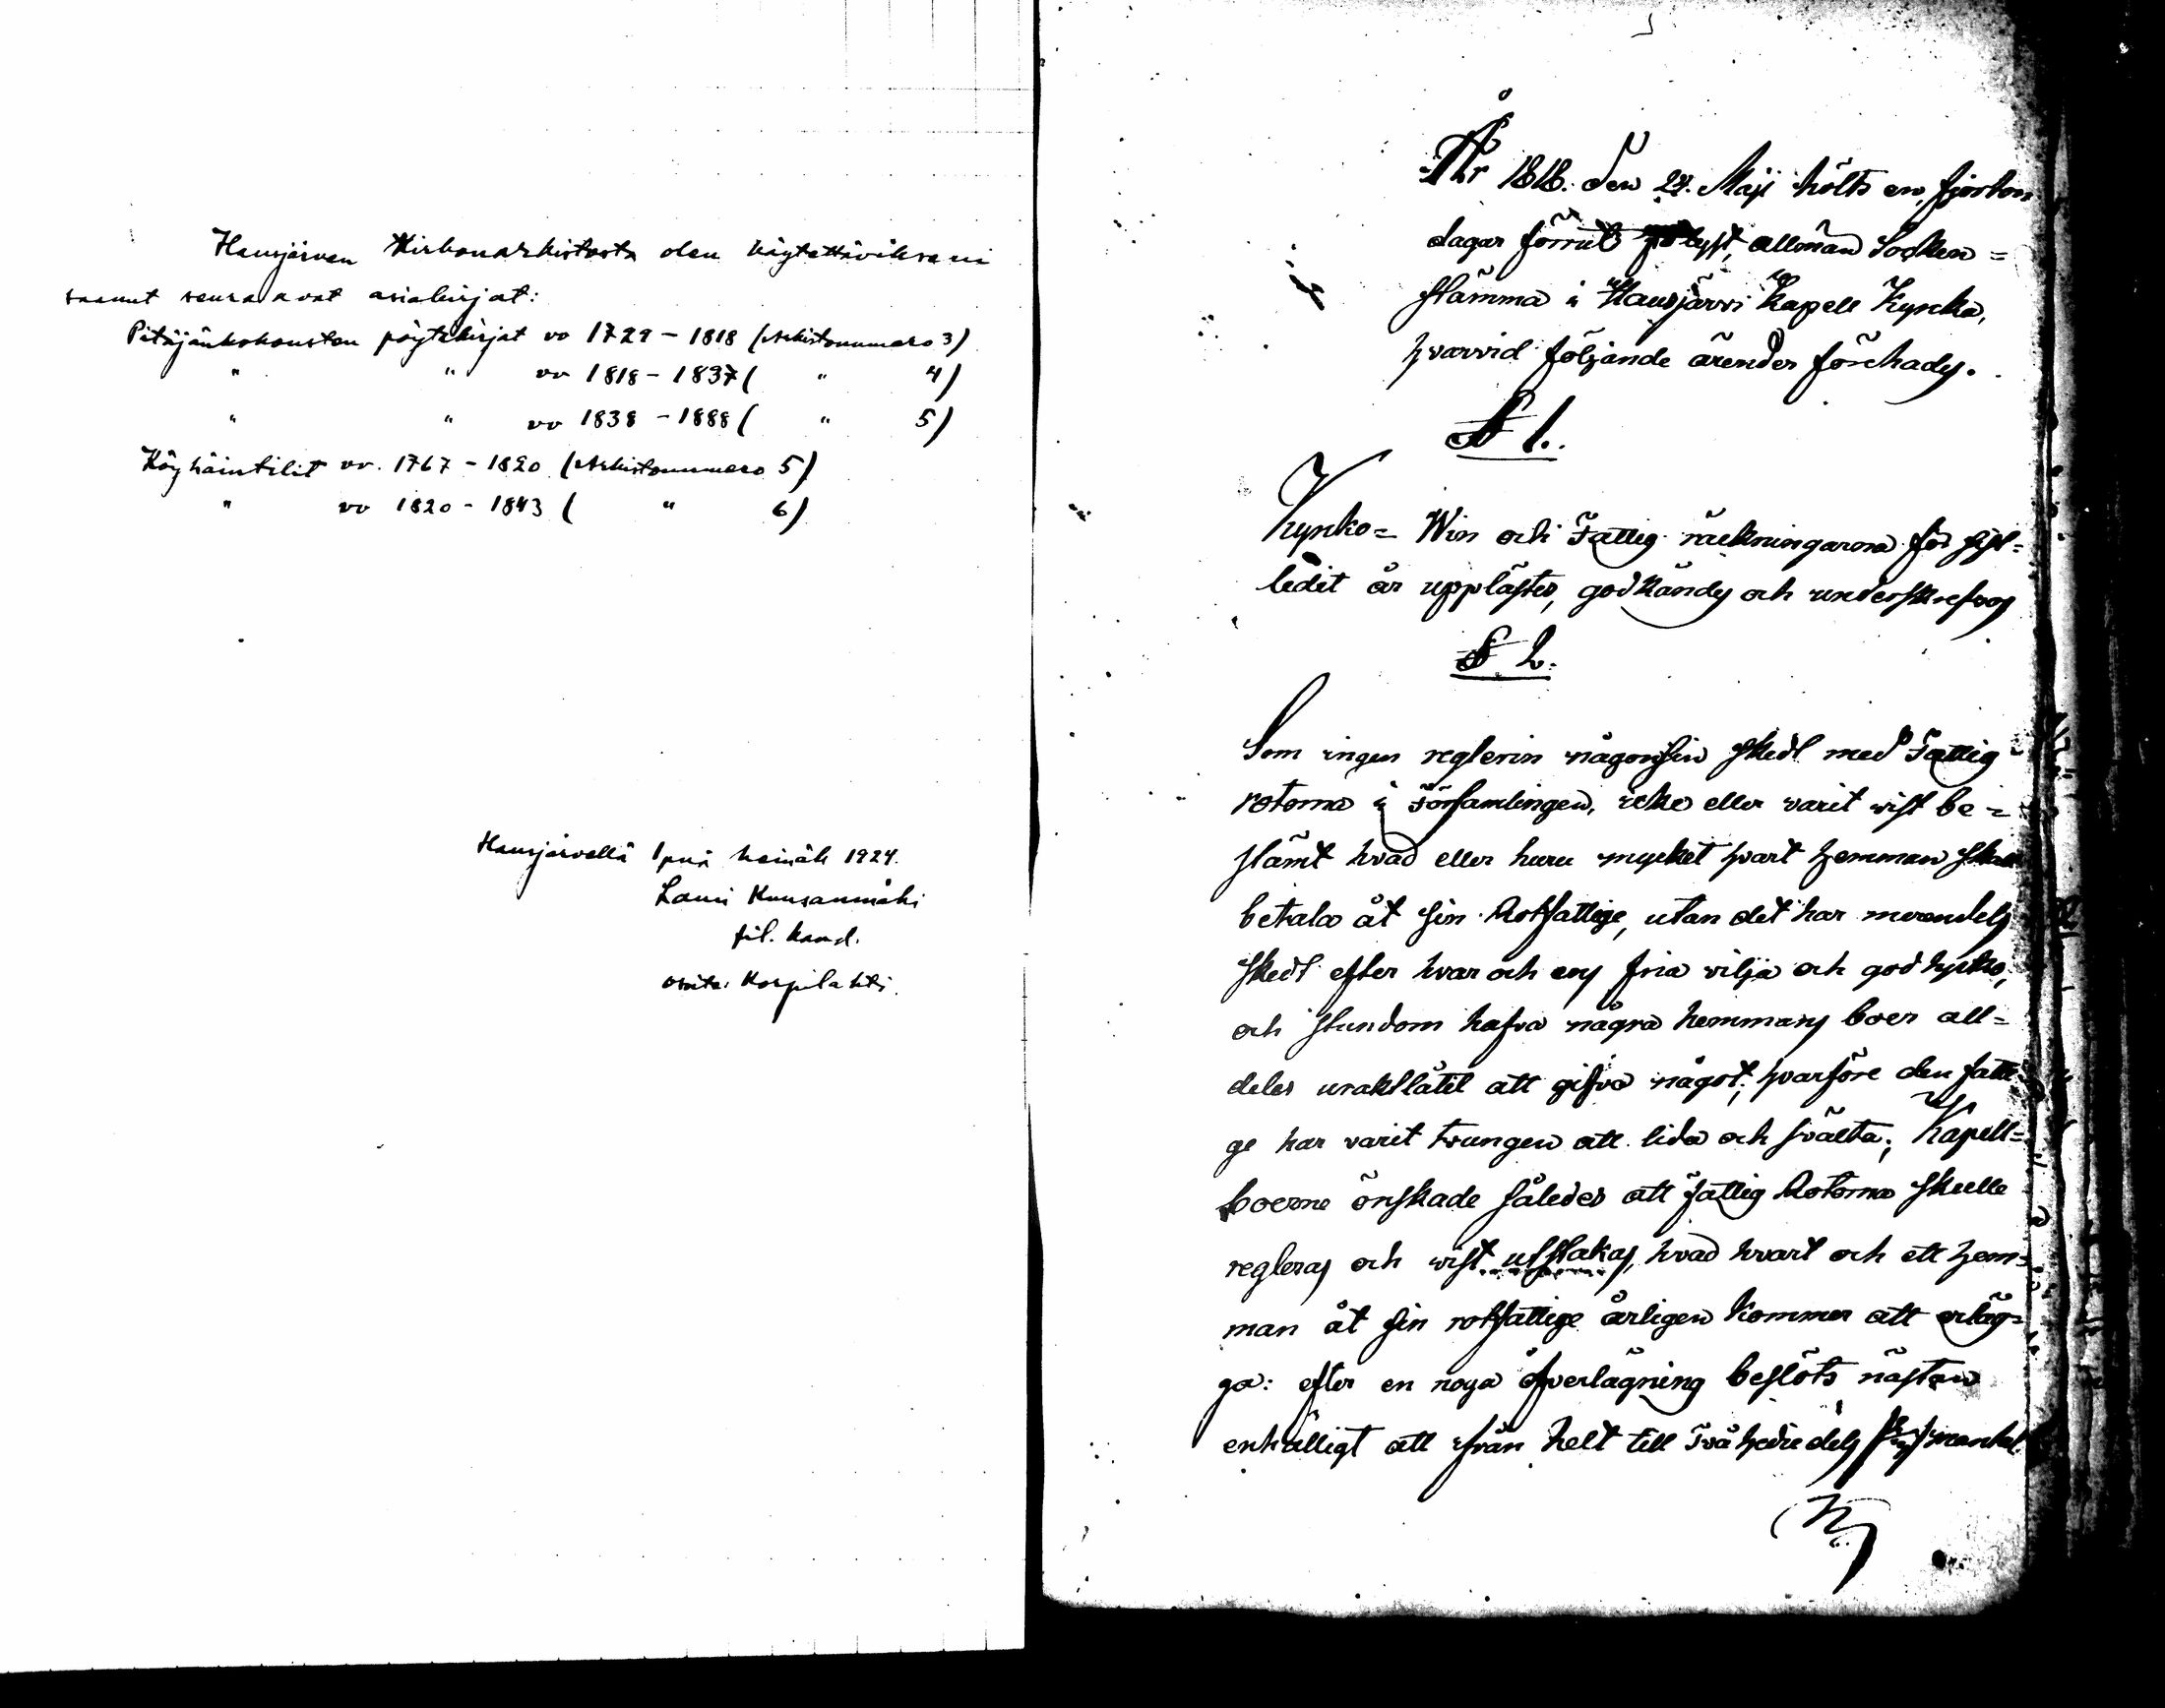 Hausjärven Kirkonarkistosta olen käytettäväkseni
saanut seuraavat asiakirjat:
Pitäjänkokousten pöytäkirjat vv 1729 - 1818 (Arkistonumero 3)
" " vv 1818 - 1837 ( " 4)
" " vv 1838 - 1888 ( " 5)
Köyhäintilit vv. 1767 - 1820 (Arkistonumero 5)
" vv 1820 - 1843 ( " 6)
Hausjärvellä 1 pnä heinäk 1924.
Lauri Kuusanmäki
fil. kand.
osoite: Korpilahti.
År 1818. den 24. Maji hölts en, fjorton
dagar förrut pålyst, allmän Socken=
stämma i Hausjärvi Kapell Kyrka,
hvarvid följande ärender förehades.
§ 1.
Kyrko= Win och Fattig räckningarna för sist=
ledit år upplästes, godkändes och underskrefvos
§ 2.
Som ingen reglerin någonsin skedt med Fattig
rotorna i Församlingen, icke eller varit wist be=
stämt hvad eller huru mycket hvart hemman skall
betala åt sin Rotfattige, utan det har merendels
skedt efter hvar och ens fria vilja och godtycke,
och stundom hafva några hemmans boer all=
deles uraktlåtit att gifva något; hvarföre den fatti
ge har varit tvungen att lida och svälta; Kapell=
boerne önskade således att fattig Rotorna skulle
regleras och wist utstakas, hvad hvart och ett hem=
man åt sin rotfattige årligen kommer att erläg=
ga: efter en noga öfverlägning beslöts nästan
enhälligt att ifrån helt till två tredie dels mantal